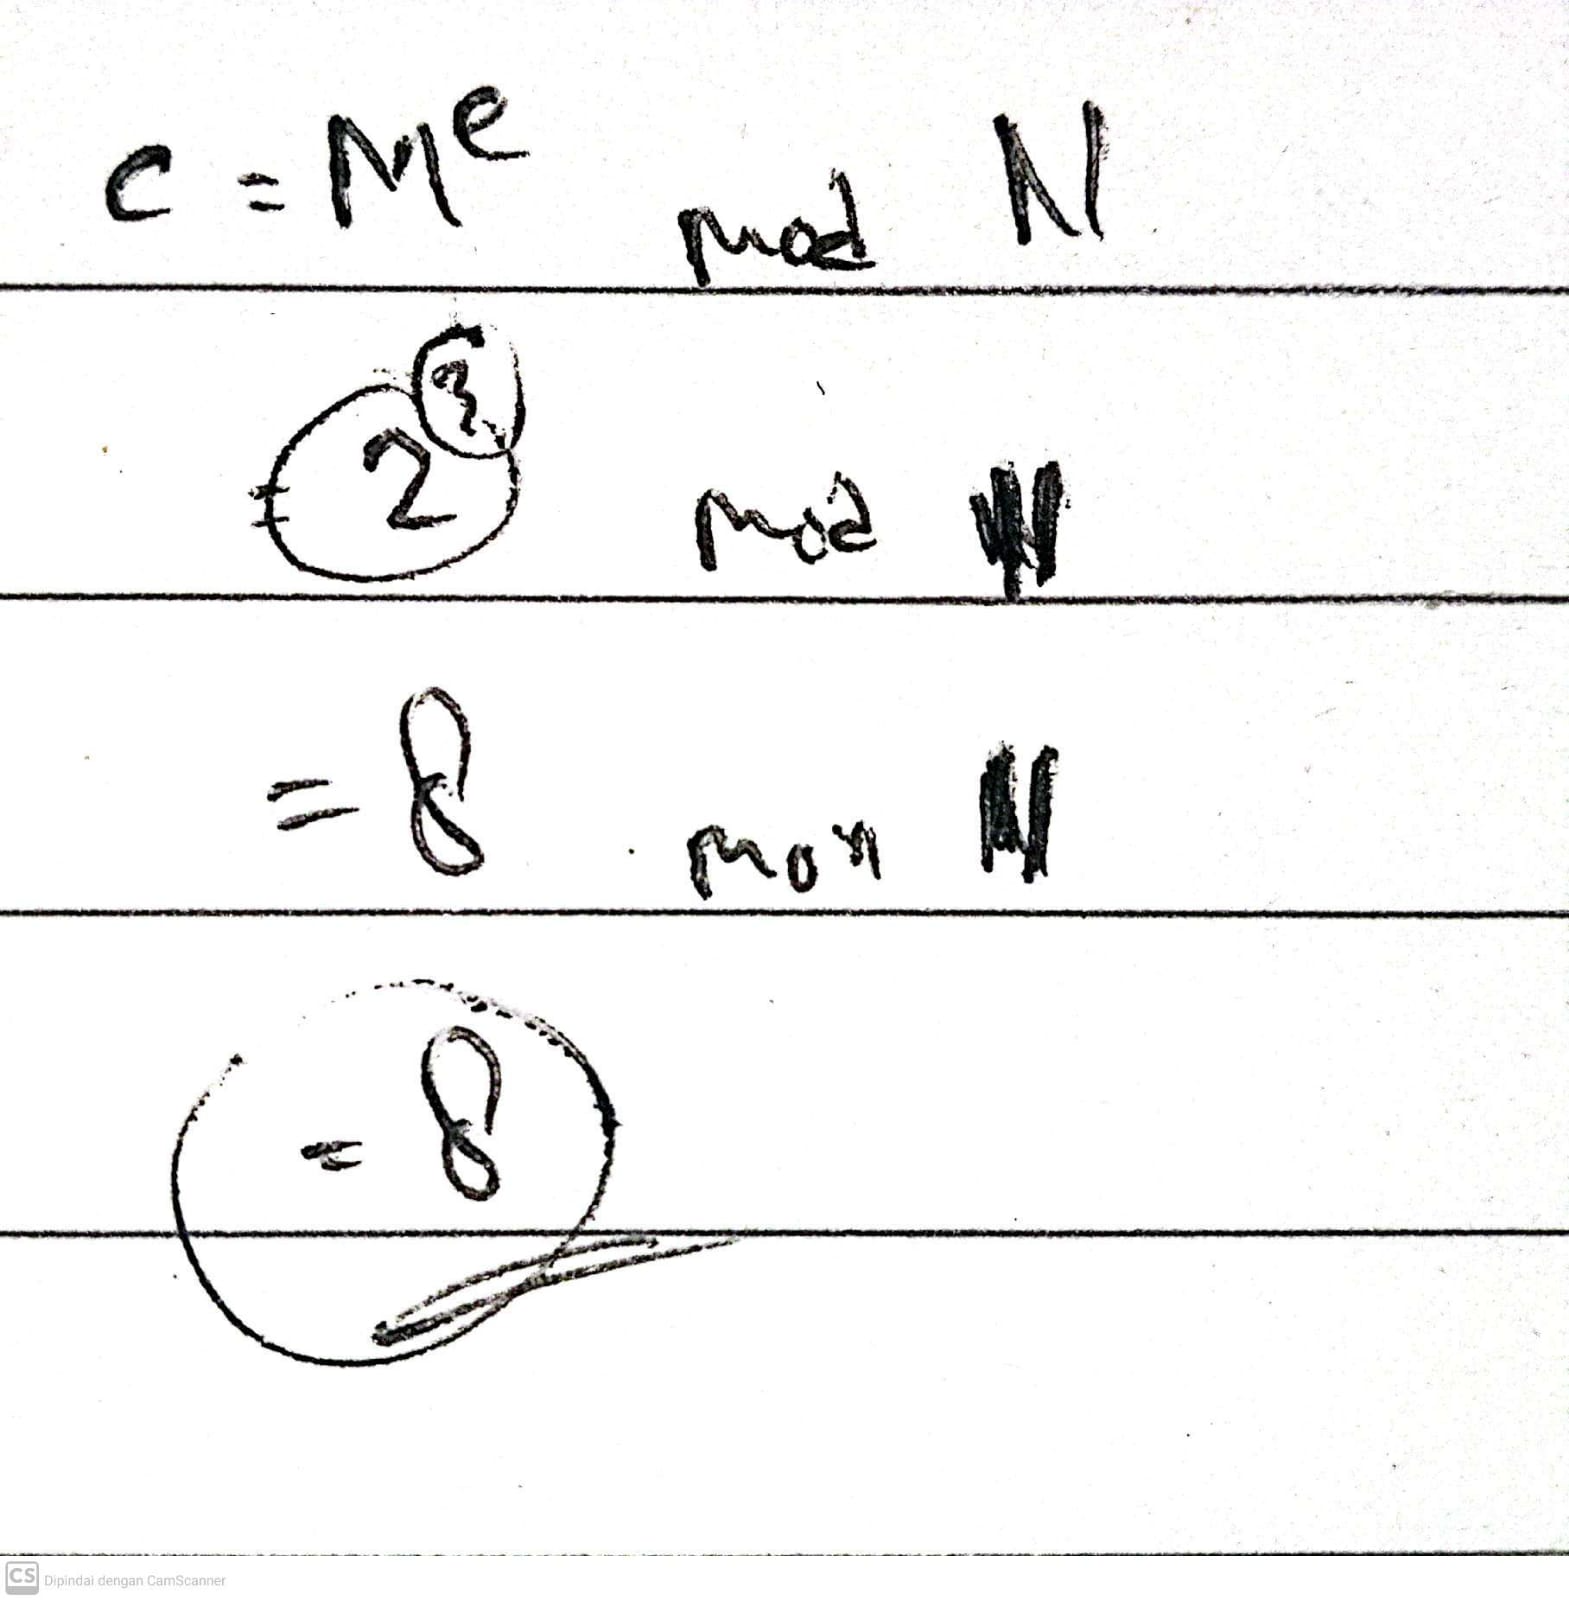 C = M^e mod N
= 2^3 mod N
= 8 mon N
= 8
CS Dipindai dengan CamScanner